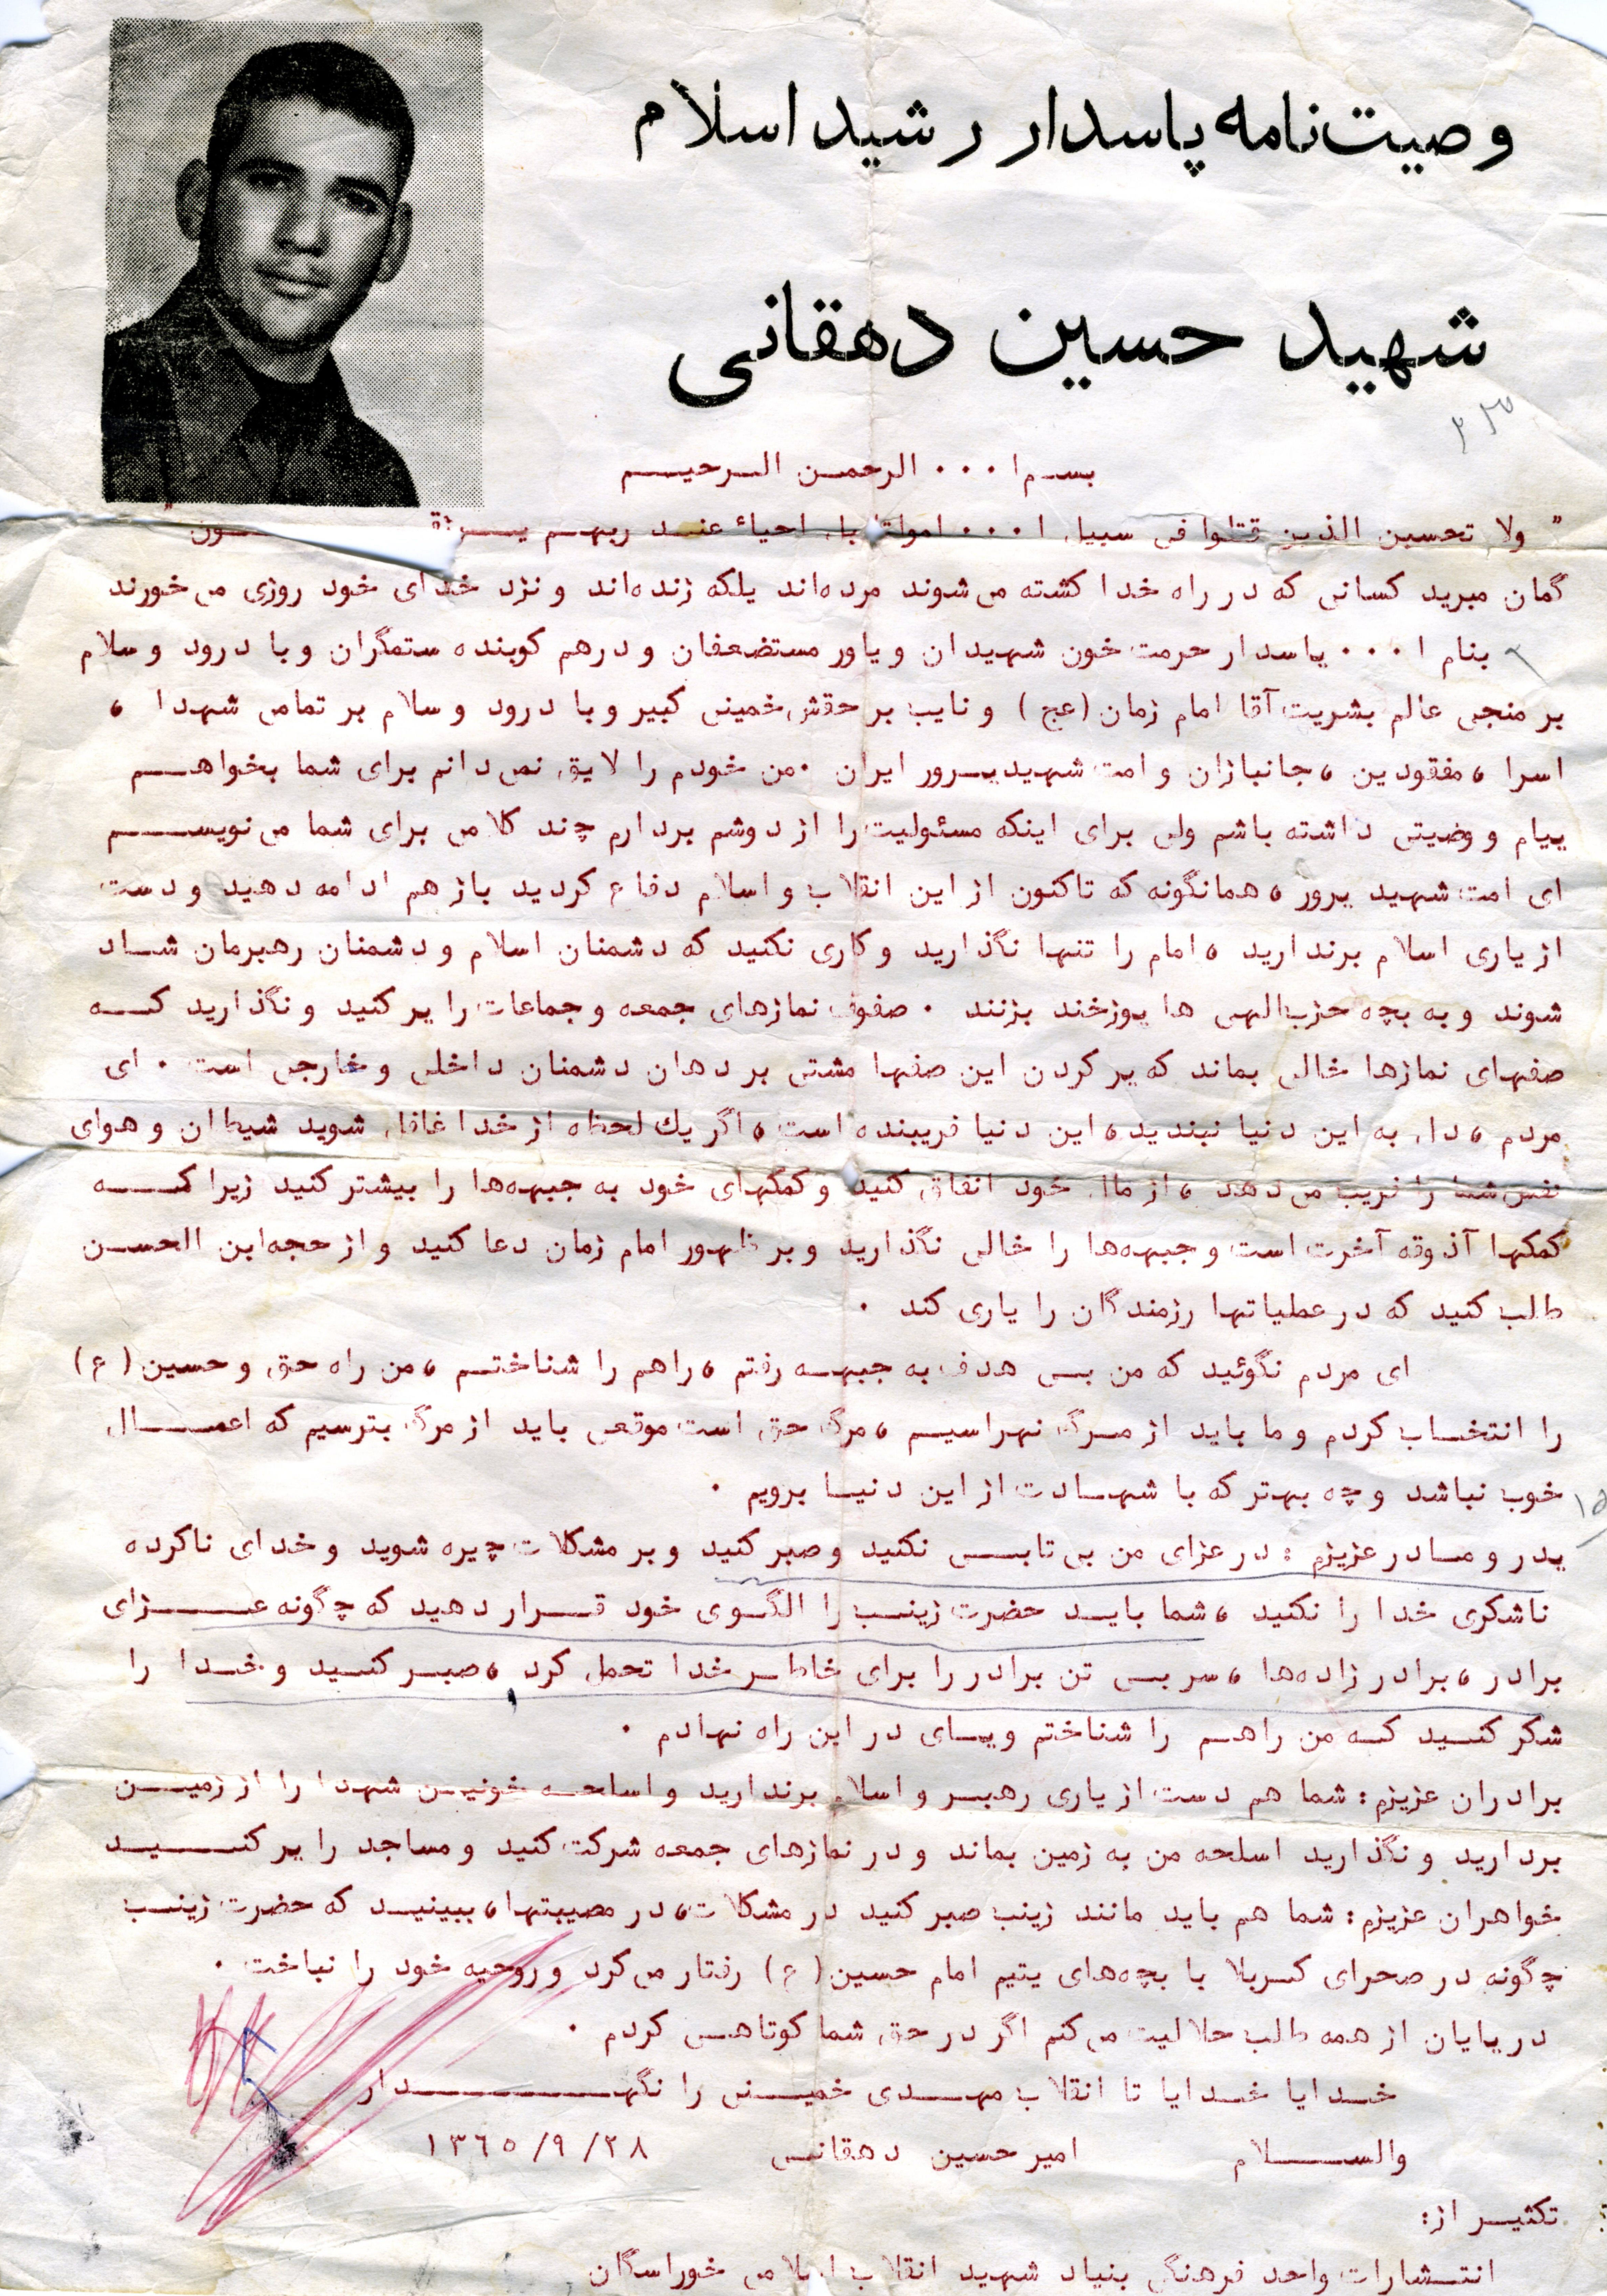 وصیت‌نامه پاسدار رشید اسلام
شهید حسین دهقانی
۳۳
بسم ا... الرحمن الرحیم
" ولا تحسبن الذین قتلوا فی سبیل ا... امواتا بل احیاء عند ربهم یرزقون "
گمان مبرید کسانی که در راه خدا کشته می‌شوند مرده‌اند بلکه زنده‌اند و نزد خدای خود روزی می‌خورند
بنام ا... پاسدار حرمت خون شهیدان و یاور مستضعفان و درهم کوبنده ستمگران و با درود و سلام
بر منجی عالم بشریت آقا امام زمان (عج) و نایب بر حقش خمینی کبیر و با درود و سلام بر تمامی شهدا ،
اسرا ، مفقودین ، جانبازان و امت شهیدپرور ایران . من خودم را لایق نمی‌دانم برای شما بخواهم
پیام و وضیتی داشته باشم ولی برای اینکه مسئولیت را از دوشم بردارم چند کلامی برای شما می‌نویسم
ای امت شهید پرور ، همانگونه که تاکنون از این انقلاب و اسلام دفاع کردید باز هم ادامه دهید و دست
از یاری اسلام برندارید ، امام را تنها نگذارید و کاری نکنید که دشمنان اسلام و دشمنان رهبرمان شاد
شوند و به بچه حزب‌الهی ها پوزخند بزنند . صفوف نمازهای جمعه و جماعات را پر کنید و نگذارید که
صفهای نمازها خالی بماند که پر کردن این صفها مشتی بر دهان دشمنان داخلی و خارجی است . ای
مردم ، دل به این دنیا نبندید ، این دنیا فریبنده است ، اگر یك لحظه از خدا غافل شوید شیطان و هوای
نفس شما را فریب می‌دهد ، از مال خود انفاق کنید و کمکهای خود به جبهه‌ها را بیشتر کنید زیرا که
کمکها آذوقه آخرت است و جبهه‌ها را خالی نگذارید و بر ظهور امام زمان دعا کنید و از حجه‌ابن الحسن
طلب کنید که در عملیاتها رزمندگان را یاری کند .
ای مردم نگوئید که من بی هدف به جبهه رفتم ، راهم را شناختم ، من راه حق و حسین (ع)
را انتخاب کردم و ما باید از مرگ نهراسیم ، مرگ حق است موقعی باید از مرگ بترسیم که اعمال
خوب نباشد و چه بهتر که با شهادت از این دنیا برویم .
۱۵
پدر و مادر عزیزم : در عزای من بی تابی نکنید و صبر کنید و بر مشکلات چیره شوید و خدای ناکرده
ناشکری خدا را نکنید ، شما باید حضرت زینب را الگوی خود قرار دهید که چگونه عزای
برادر ، برادر زاده‌ها ، سر بی تن برادر را برای خاطر خدا تحمل کرد ، صبر کنید و خدا را
شکر کنید که من راهم را شناختم و پای در این راه نهادم .
برادران عزیزم : شما هم دست از یاری رهبر و اسلام برندارید و اسلحه خونین شهدا را از زمین
بردارید و نگذارید اسلحه من به زمین بماند و در نمازهای جمعه شرکت کنید و مساجد را پر کنید
خواهران عزیزم : شما هم باید مانند زینب صبر کنید در مشکلات ، در مصیبتها ، ببینید که حضرت زینب
چگونه در صحرای کربلا با بچه‌های یتیم امام حسین (ع) رفتار می‌کرد و روحیه خود را نباخت .
در پایان از همه طلب حلالیت می‌کنم اگر در حق شما کوتاهی کردم .
خدایا خدایا تا انقلاب مهدی خمینی را نگهدار
والسلام امیر حسین دهقانی ۱۳۶۵/۹/۲۸
تکثیر از :
انتشارات واحد فرهنگی بنیاد شهید انقلاب اسلامی خوراسگان